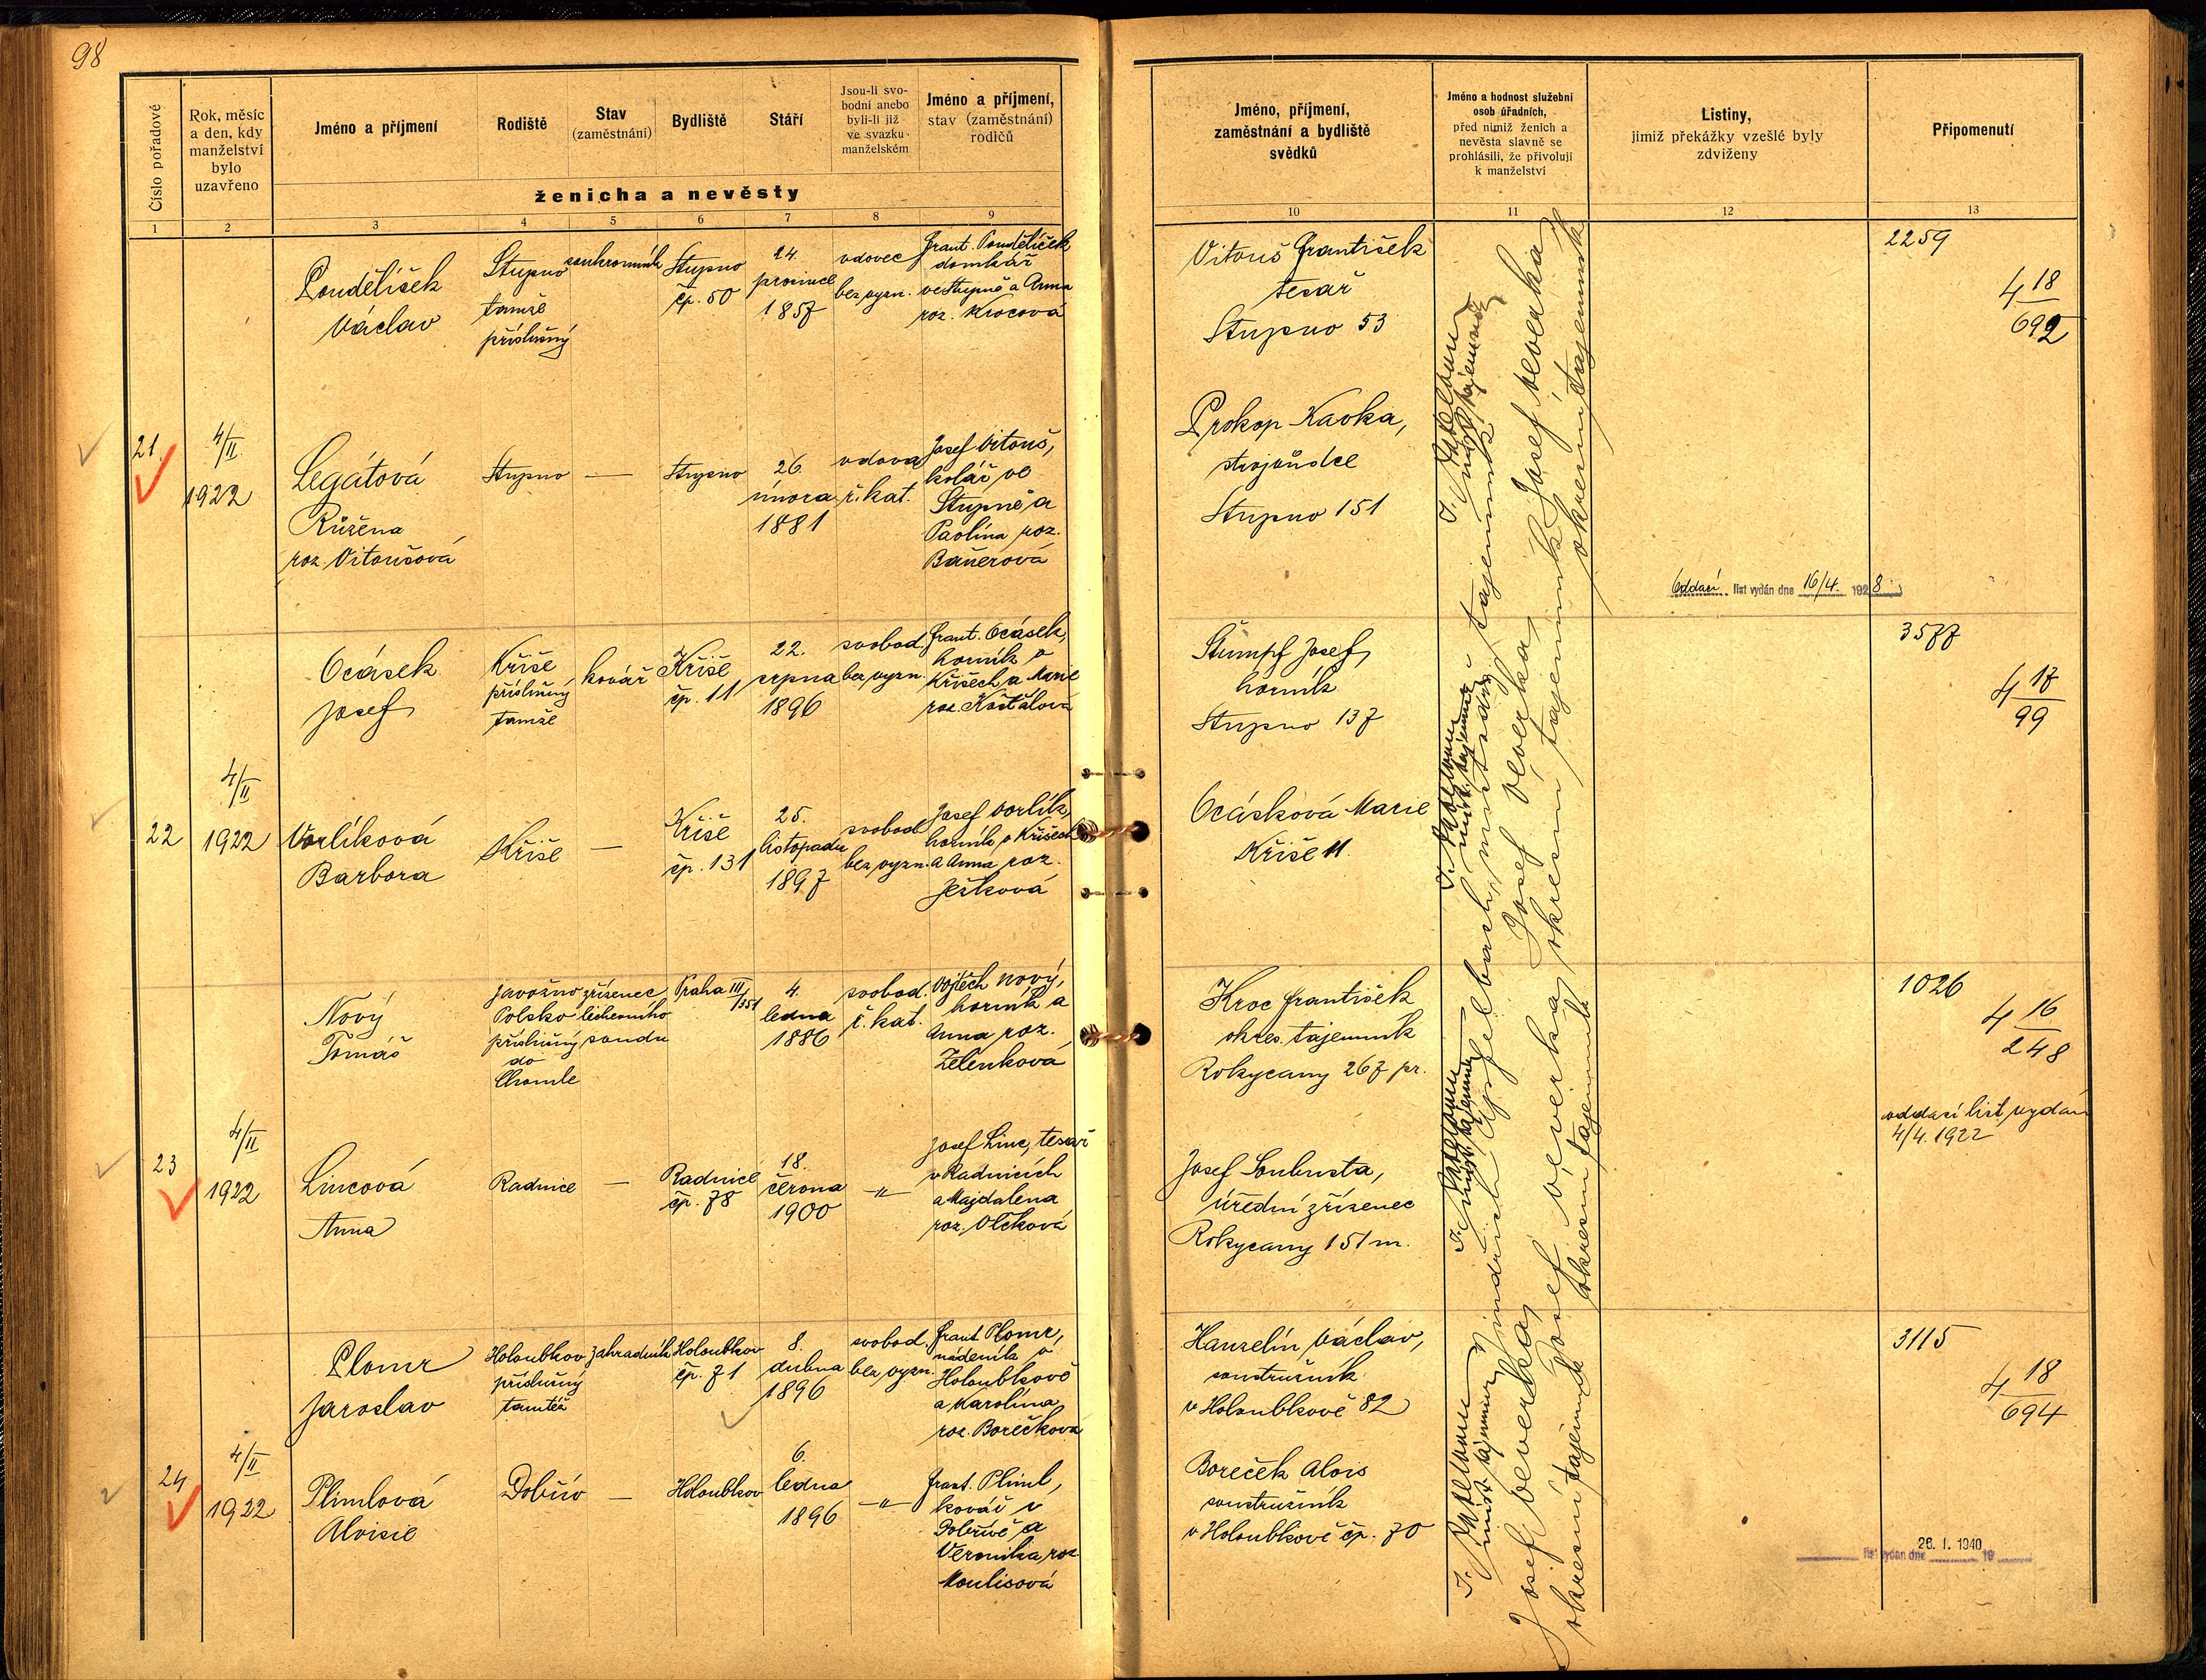 98
Číslo pořadové
Rok, měsíc
a den, kdy
manželství
bylo
uzavřeno
Jméno a příjmení
Rodiště
Stav
(zaměstnání)
Bydliště
Stáří
Jsou-li svo-
bodni anebo
byli-li již
ve svazku
manželském
Jméno a příjmení,
stav (zaměstnání)
rodičů
ženicha a nevěsty
Jméno, příjmení,
zaměstnání a bydliště
svědků
Jméno a hodnost služební
osob úřadních,
před nimiž ženich a
nevěsta slavně se
prohlásili, že přivolují
k manželství
Listiny,
jimiž překážky vzešlé byly
zdviženy
Připomenutí
1 2 3 4 5 6 7 8 9 10 11 12 13
21.
4/II
1922
Poudělíček
Václav
Stupno
tamže
příslušný
soukromník
Stupno
čp. 50
24.
prosince
1857
vdovec
bez vyzn.
Frant. Poudělíček
domkář
ve Stupně a Anna
roz. Krocová
Legátová
Růžena
roz. Vitoušová
Stupno
—
Stupno
26.
února
1881
vdova
ř. kat.
Josef Vitouš,
kolář ve
Stupně a
Paolína roz.
Bauerová
Vitouš František
tesař
Stupno 53
Prokop Kavka,
strojvůdce
Stupno 151
Oddací list vydán dne 16/4. 1928
2259
4 18/692
22
4/II
1922
Ocásek
Josef
Kříše
příslušný
tamže
kovář
Kříše
čp. 11
22.
srpna
1896
svobod.
bez vyzn.
Frant. Ocásek,
horník v
Kříšech a Marie
roz. Košťálová
Vorlíková
Barbora
Kříše
—
Kříše
čp. 131
25.
listopadu
1897
svobod.
bez vyzn.
Josef Vorlík,
horník v Kříšech
a Anna roz.
Ježková
Štumpf Josef,
horník
Stupno 137
Ocásková Marie
Kříše 11.
3577
4 17/99
23
4/II
1922
Nový
Tomáš
Javožno
Polsko
příslušný
do
Chomle
zřízenec
lichevního
soudu
Praha III
/351
4.
ledna
1886
svobod.
ř. kat.
Vojtěch Nový,
horník a
Anna roz.
Zelenková
Lincová
Anna
Radnice
—
Radnice
čp. 78
18.
června
1900
—"—
Josef Linc, tesař
v Radnicích
a Majdalena
roz. Vlčková
Kroc František
okres. tajemník
Rokycany 267 pr.
Josef Soubusta,
úřední zřízenec
Rokycany 151 m.
1026
4 16/248
oddací list vydán
4/4. 1922
24
4/II
1922
Plomr
Jaroslav
Holoubkov
příslušný
tamtéž
zahradník
Holoubkov
čp. 71
8.
dubna
1896
svobod.
bez vyzn.
Frant. Plomr,
nádeník v
Holoubkově
a Karolína
roz. Borečková
Plimlová
Aloisie
Dobřív
—
Holoubkov
6.
ledna
1896
—"—
Frant. Pliml,
kovář v
Dobřívě a
Veronika roz.
Moulisová
Hanzelín Václav,
soustružník
v Holoubkově 82
Boreček Alois
soustružník
v Holoubkově čp. 70
3115
4 18/694
list vydán dne 26. I. 1940 19
Josef Veverka,
okresní tajemník
Josef Veverka,
okresní tajemník
Josef Veverka,
okresní tajemník
Josef Veverka,
okresní tajemník